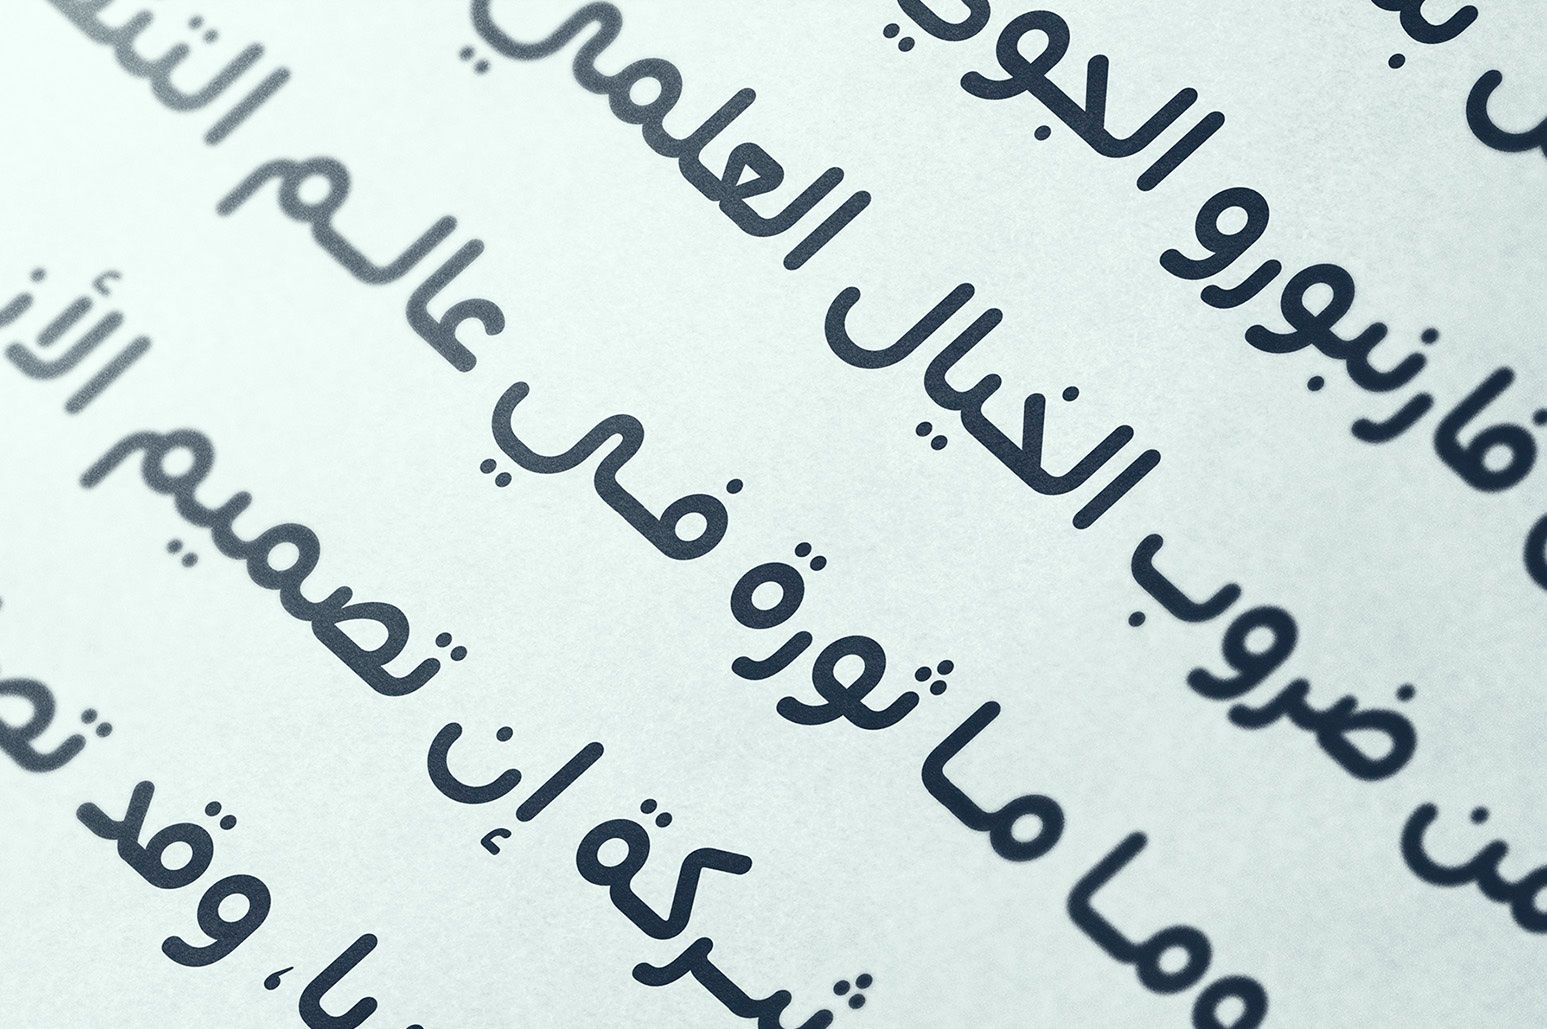 فارنبورو الجوي
من ضروب الخيال العلمي
وما ما ثورة في عالم
شركة إن تصميم
وقد